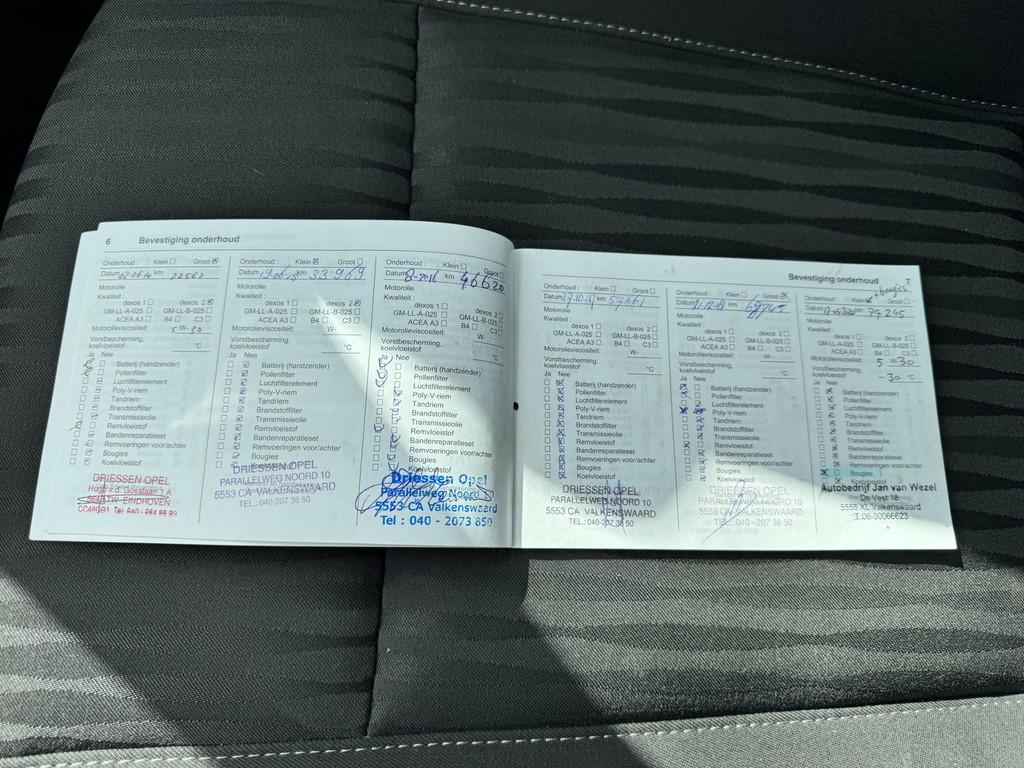 6 Bevestiging onderhoud
Onderhoud: Klein Groot
Datum km 22562
Motorolie
Kwaliteit:
dexos 1 dexos 2
GM-LL-A-025 GM-LL-B-025
ACEA A3 B4 C3
Motorolieviscositeit: 5W-30
Vorstbescherming,
koelvloeistof °C
Ja Nee
Batterij (handzender)
Pollenfilter
Luchtfilterelement
Poly-V-riem
Tandriem
Brandstoffilter
Transmissieolie
Remvloeistof
Bandenreparatieset
Remvoeringen voor/achter
Bougies
Koelvloeistof
DRIESSEN OPEL
EINDHOVEN
Onderhoud: Klein Groot
Datum km 33.969
Motorolie
Kwaliteit:
dexos 1 dexos 2
GM-LL-A-025 GM-LL-B-025
ACEA A3 B4 C3
Motorolieviscositeit: W-
Vorstbescherming,
koelvloeistof °C
Ja Nee
Batterij (handzender)
Pollenfilter
Luchtfilterelement
Poly-V-riem
Tandriem
Brandstoffilter
Transmissieolie
Remvloeistof
Bandenreparatieset
Remvoeringen voor/achter
Bougies
DRIESSEN OPEL
PARALLELWEG NOORD 10
5553 CA VALKENSWAARD
TEL.: 040-207 38 50
Onderhoud: Klein Groot
Datum 8-2016 km 46620
Motorolie
Kwaliteit:
dexos 1 dexos 2
GM-LL-A-025 GM-LL-B-025
ACEA A3 B4 C3
Motorolieviscositeit: W-
Vorstbescherming,
koelvloeistof °C
Ja Nee
Batterij (handzender)
Pollenfilter
Luchtfilterelement
Poly-V-riem
Tandriem
Brandstoffilter
Transmissieolie
Remvloeistof
Bandenreparatieset
Remvoeringen voor/achter
Bougies
Koelvloeistof
Driessen Opel
Parallelweg Noord
5553 CA Valkenswaard
Tel : 040 - 2073 850
Bevestiging onderhoud 7
Onderhoud: Klein Groot
Datum 27.10.17 km 57.661
Motorolie
Kwaliteit:
dexos 1 dexos 2
GM-LL-A-025 GM-LL-B-025
ACEA A3 B4 C3
Motorolieviscositeit: W-
Vorstbescherming,
koelvloeistof °C
Ja Nee
Batterij (handzender)
Pollenfilter
Luchtfilterelement
Poly-V-riem
Tandriem
Brandstoffilter
Transmissieolie
Remvloeistof
Bandenreparatieset
Remvoeringen voor/achter
Bougies
Koelvloeistof
DRIESSEN OPEL
PARALLELWEG NOORD 10
5553 CA VALKENSWAARD
TEL.: 040-207 38 50
Onderhoud: Klein Groot
Datum km
Motorolie
Kwaliteit:
dexos 1 dexos 2
GM-LL-A-025 GM-LL-B-025
ACEA A3 B4 C3
Motorolieviscositeit: W-
Vorstbescherming,
koelvloeistof °C
Ja Nee
Batterij (handzender)
Pollenfilter
Luchtfilterelement
Poly-V-riem
Tandriem
Brandstoffilter
Transmissieolie
Remvloeistof
Bandenreparatieset
Remvoeringen voor/achter
Bougies
Koelvloeistof
DRIESSEN OPEL
PARALLELWEG NOORD 10
5553 CA VALKENSWAARD
TEL.: 040 - 207 38 50
+ bougies
Onderhoud: Klein Groot
Datum km 79.245
Motorolie
Kwaliteit:
dexos 1 dexos 2
GM-LL-A-025 GM-LL-B-025
ACEA A3 B4 C3
Motorolieviscositeit: 5 W-30
Vorstbescherming,
koelvloeistof -30 °C
Ja Nee
Batterij (handzender)
Pollenfilter
Luchtfilterelement
Poly-V-riem
Tandriem
Brandstoffilter
Transmissieolie
Remvloeistof
Bandenreparatieset
Remvoeringen voor/achter
Bougies
Koelvloeistof
Autobedrijf Jan van Wezel
De Vest 18
5555 XL Valkenswaard
T:06-30066623